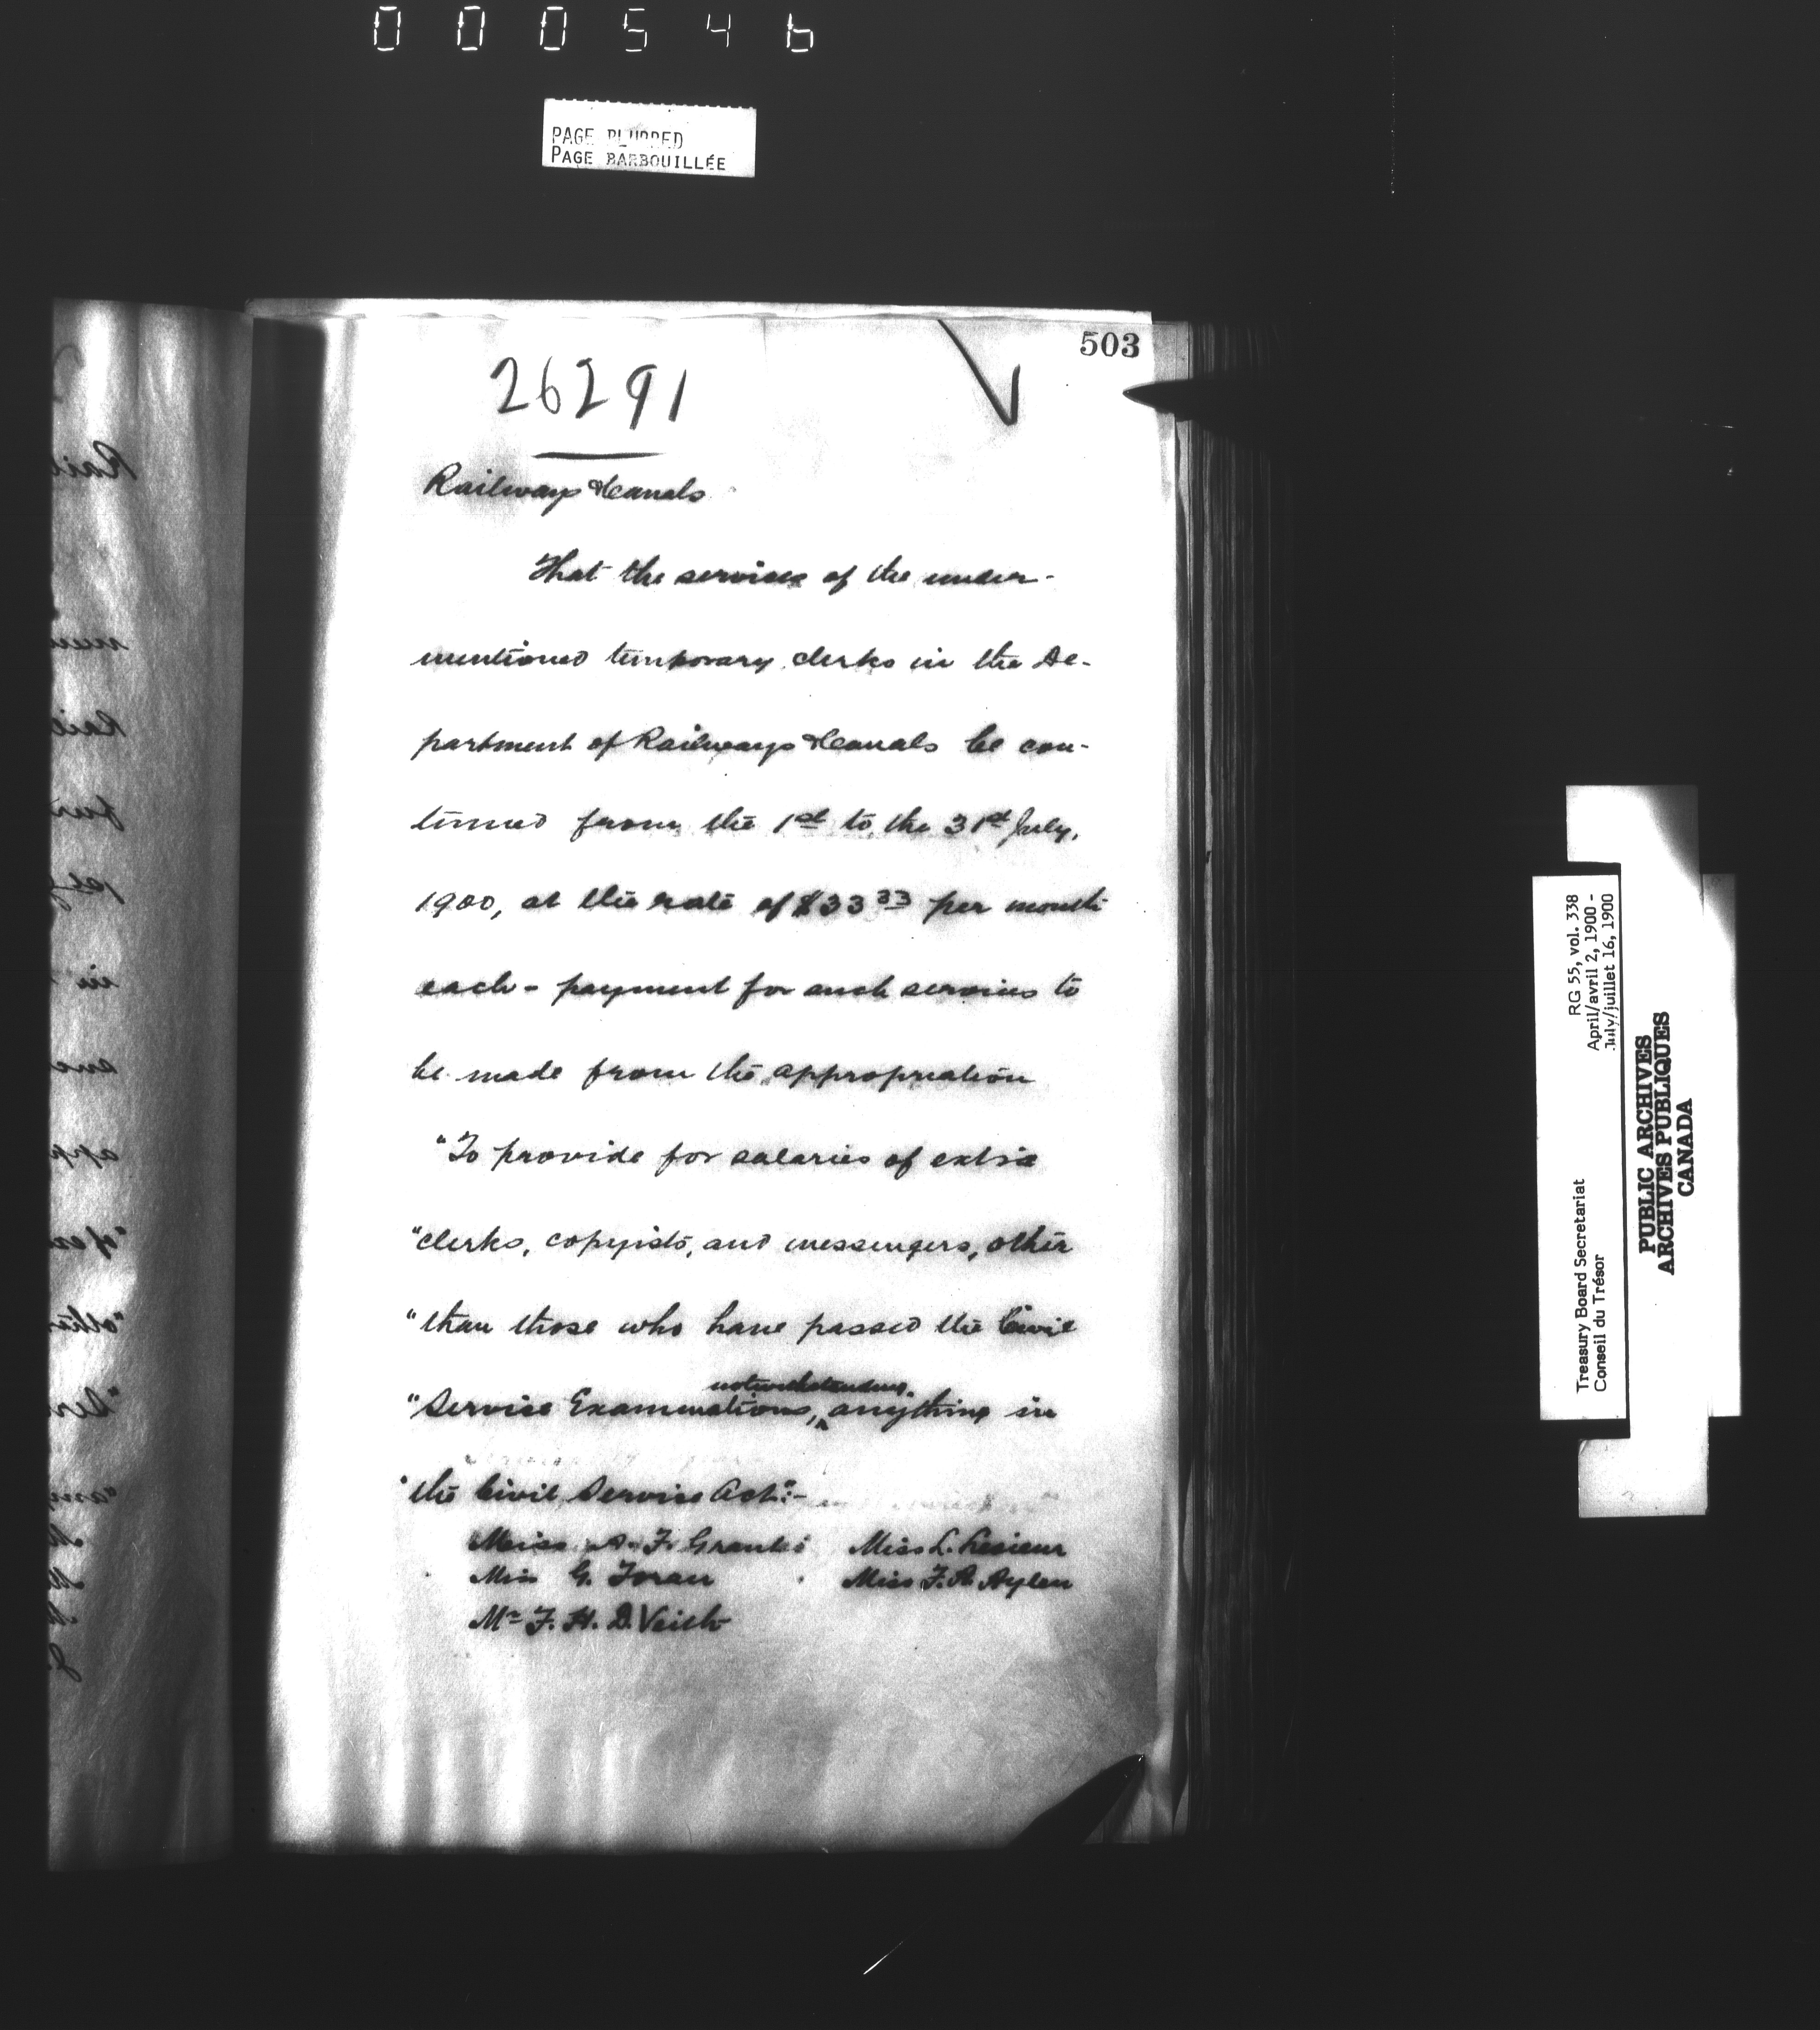 000546
PAGE BLURRED
PAGE BARBOUILLÉE
503
26291
Railways & Canals
That the services of the under-
mentioned temporary clerks in the De-
partment of Railways & Canals be con-
tinued from the 1st to the 31st July,
1900, at the rate of $33 33 per month
each - payment for such services to
be made from the appropriation
"To provide for salaries of extra
"clerks, copyists, and messengers, other
"than those who have passed the Civil
notwithstanding
"Service Examinations, anything in
"the Civil Service Act":-
Miss A. F. Miss L. Lesieur
Miss G. Foran Miss F. A. Aylen
Mr F. H. D. Veith
RG 55, vol. 338
April/avril 2, 1900 -
July/juillet 16, 1900
Treasury Board Secretariat
Conseil du Trésor
PUBLIC ARCHIVES
ARCHIVES PUBLIQUES
CANADA